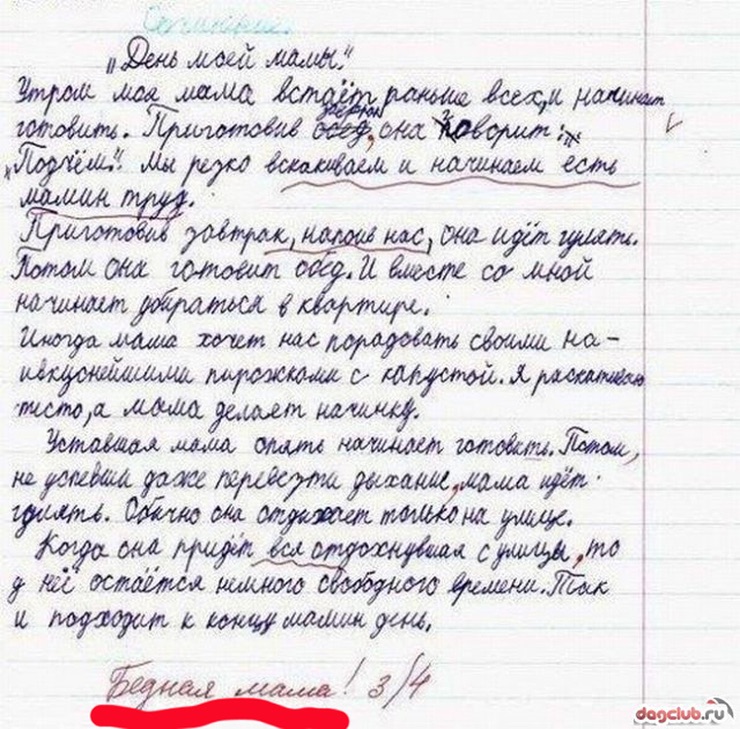 Сочинение.
„День моей мамы."
Утром моя мама встаёт раньше всех, и начинает
готовить. Приготовив завтрак обед, она говорит:
„Подъём." Мы резко вскакиваем и начинаем есть
мамин труд.
Приготовив завтрак, напоив нас, она идёт гулять.
Потом она готовит обед. И вместе со мной
начинает убираться в квартире.
Иногда мама хочет нас порадовать своими на-
ивкуснейшими пирожками с капустой. Я раскатываю
тесто, а мама делает начинку.
Уставшая мама опять начинает готовить. Потом,
не успевши даже перевезти дыхание, мама идёт
гулять. Обычно она отдыхает только на улице.
Когда она придёт вся отдохнувшая с улицы, то
у неё остаётся немного свободного времени. Так
и подходит к концу мамин день.
Бедная мама! 3/4
dagclub.ru